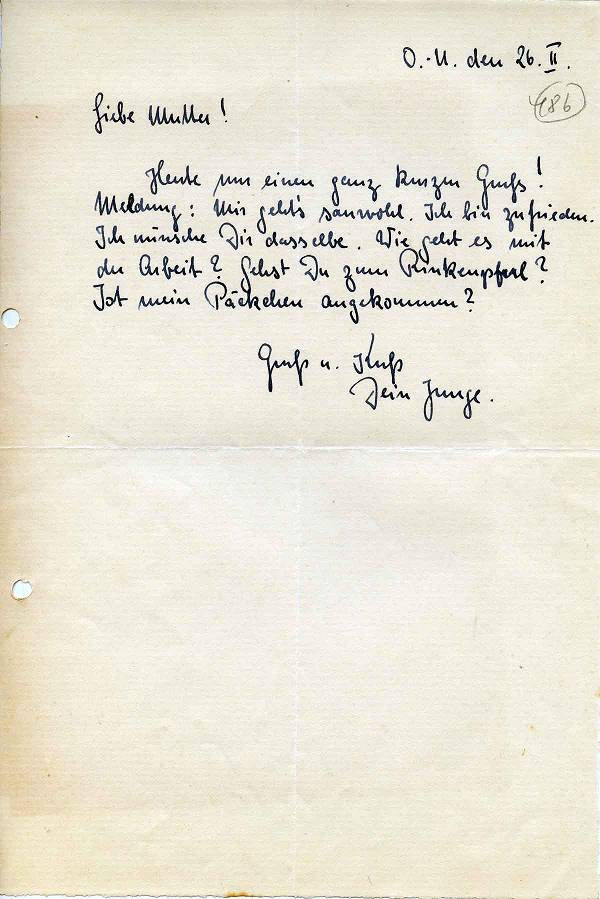 O.-U. den 26. II.
486
Liebe Mutter!
Heute nur einen ganz kurzen Gruß!
Meldung: Mir geht's sauwohl. Ich bin zufrieden.
Ich wünsche Dir dasselbe. Wie geht es mit
der Arbeit? Gehst Du zum Rinkenpfuhl?
Ist mein Päckchen angekommen?
Gruß u. Kuß
Dein Junge.